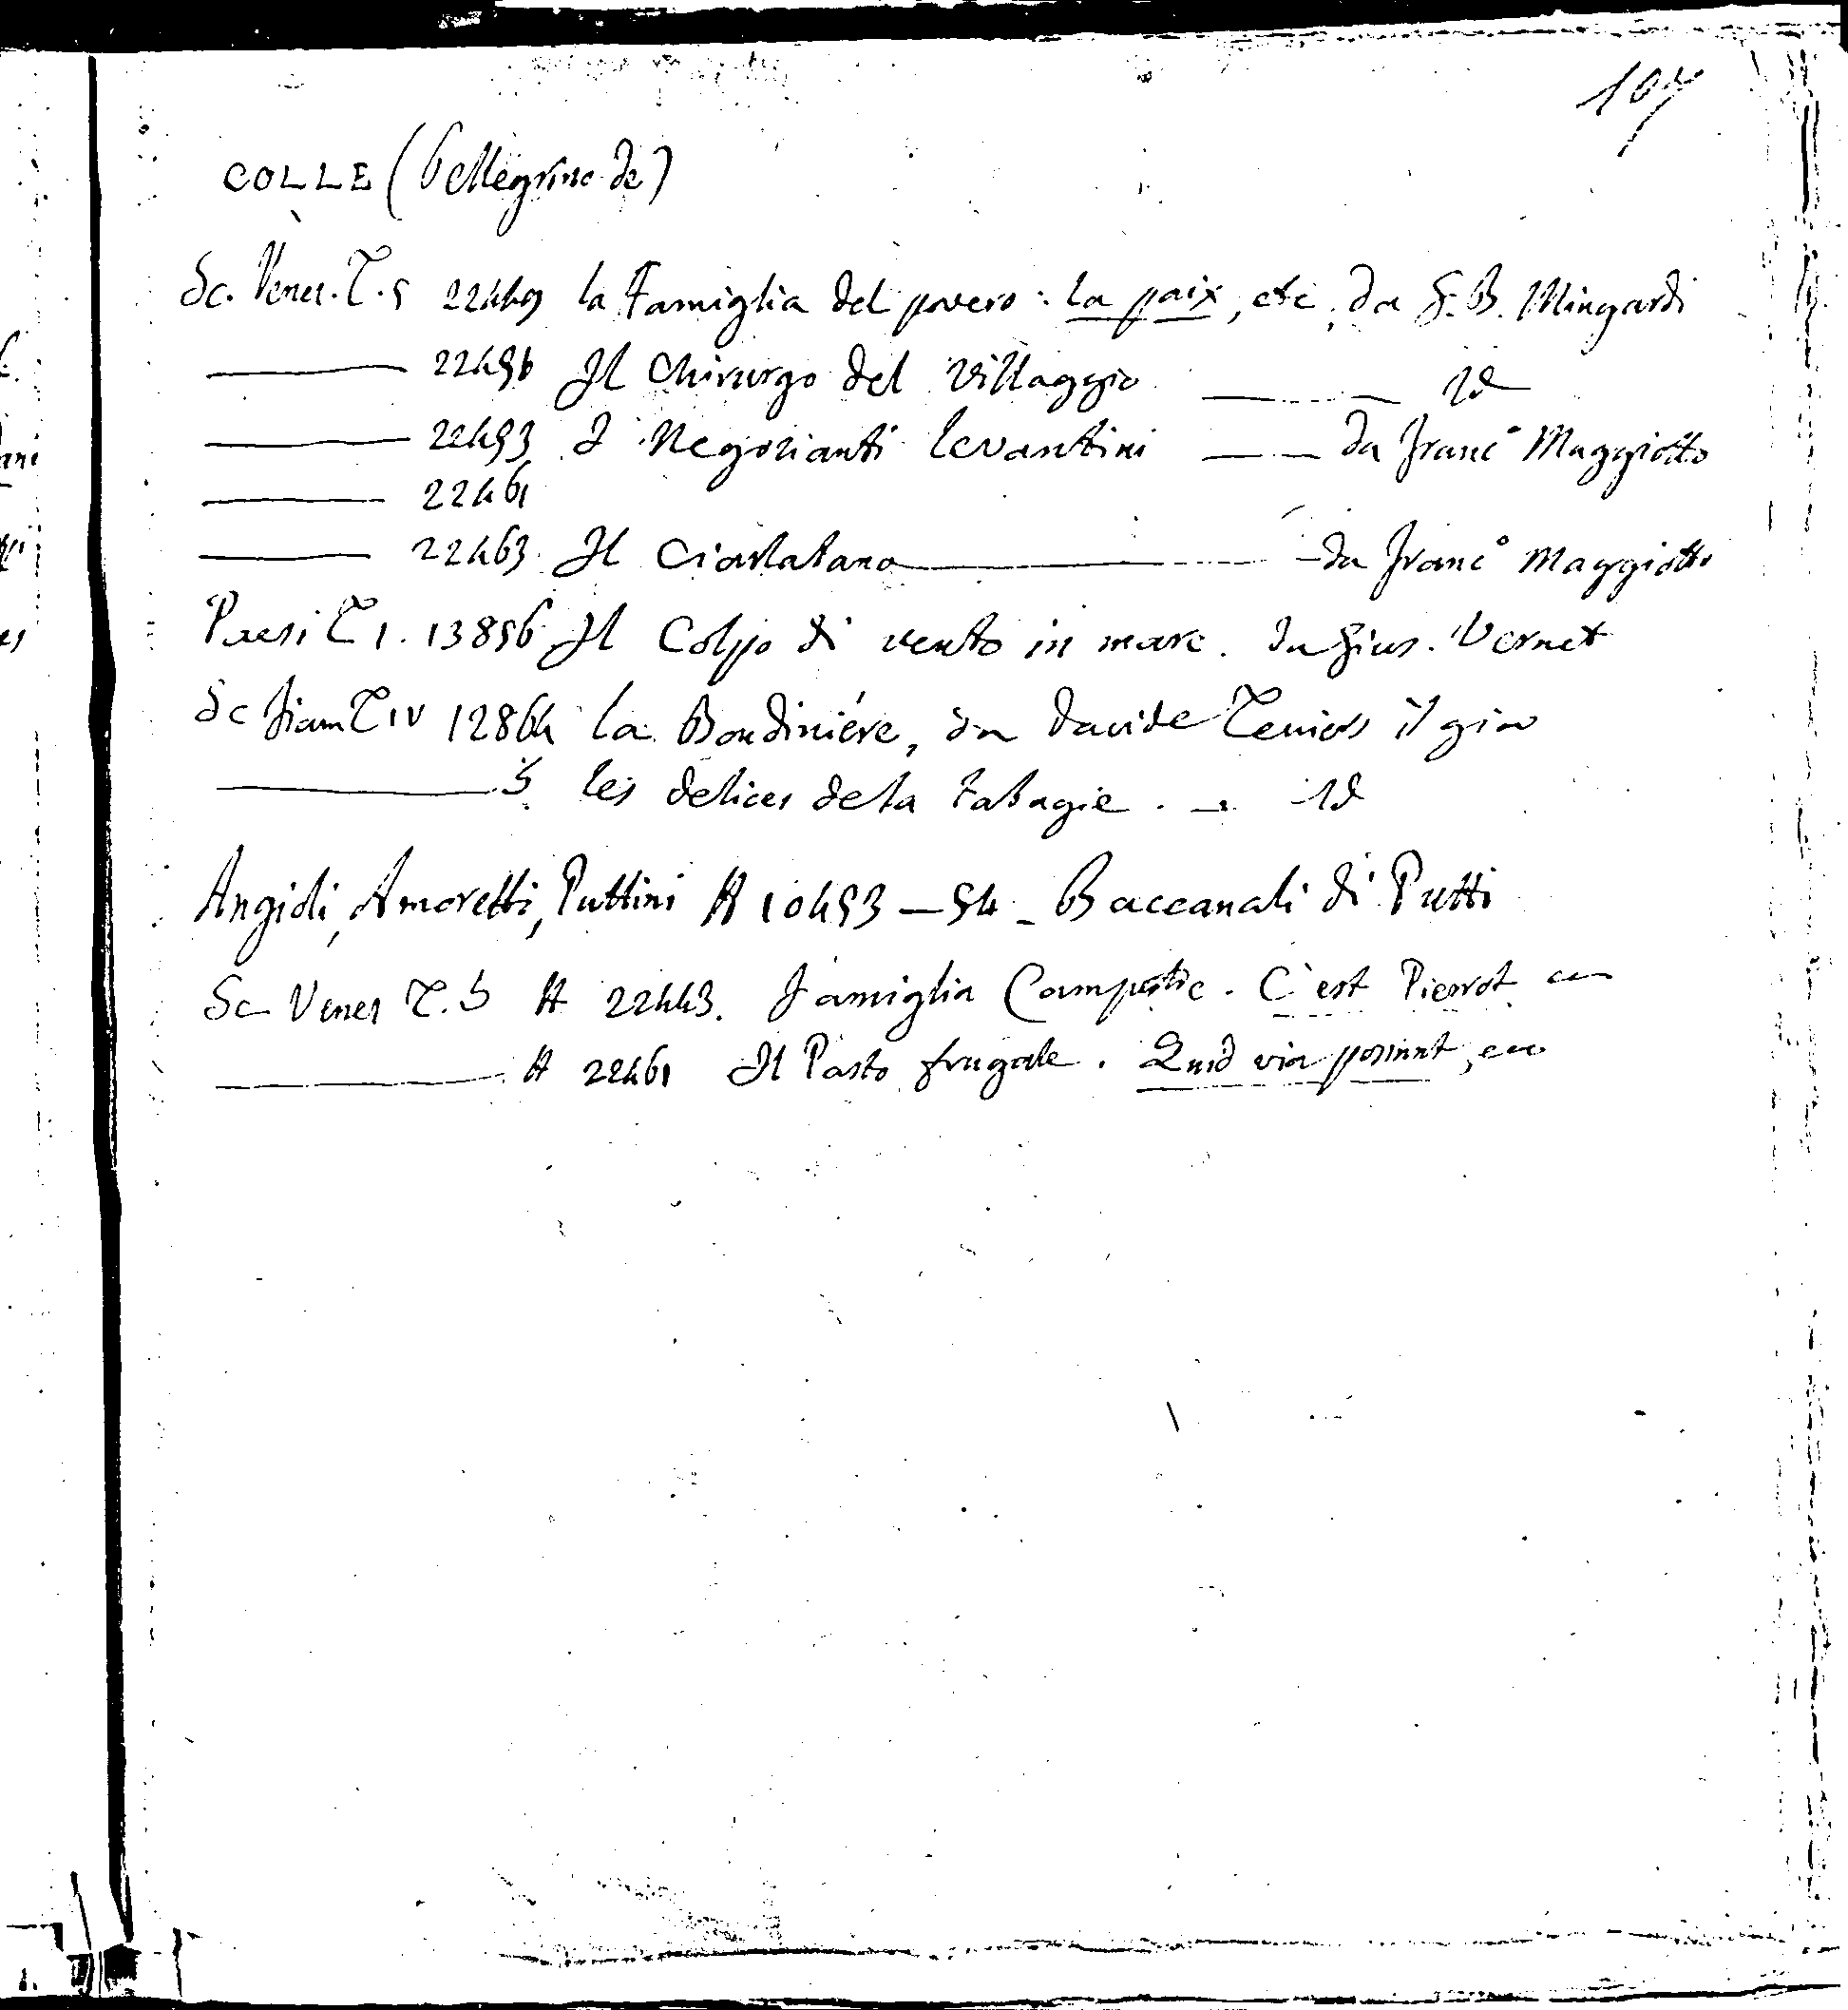 107
COLLE (Pellegrino de)
Sc. Venez. T. 5 22449 la Famiglia del povero: la paix, etc, da G. B. Mingardi
——— 22450 Il Chirurgo del Villaggio ——— Id
——— 22453 I Negozianti levantini —— da Franc° Maggiotto
——— 22461
——— 22463 Il Ciarlatano ——— da Franc° Maggiotto
Paesi T 1. 13856 Il Colpo di vento in mare. da Gius. Vernet
Sc Fiam T IV 12864 la Boudiniére, da Davide Teniers il gio
——— 5 les delices de la Tabagie. — Id
Angioli, Amoretti, Puttini A 10453 — 54 - Baccanali di Putti
Sc Venez T. 5 A 22443. Famiglia Campestre. C'est Pierrot
——— A 22461 Il Pasto frugale. Quid possunt,